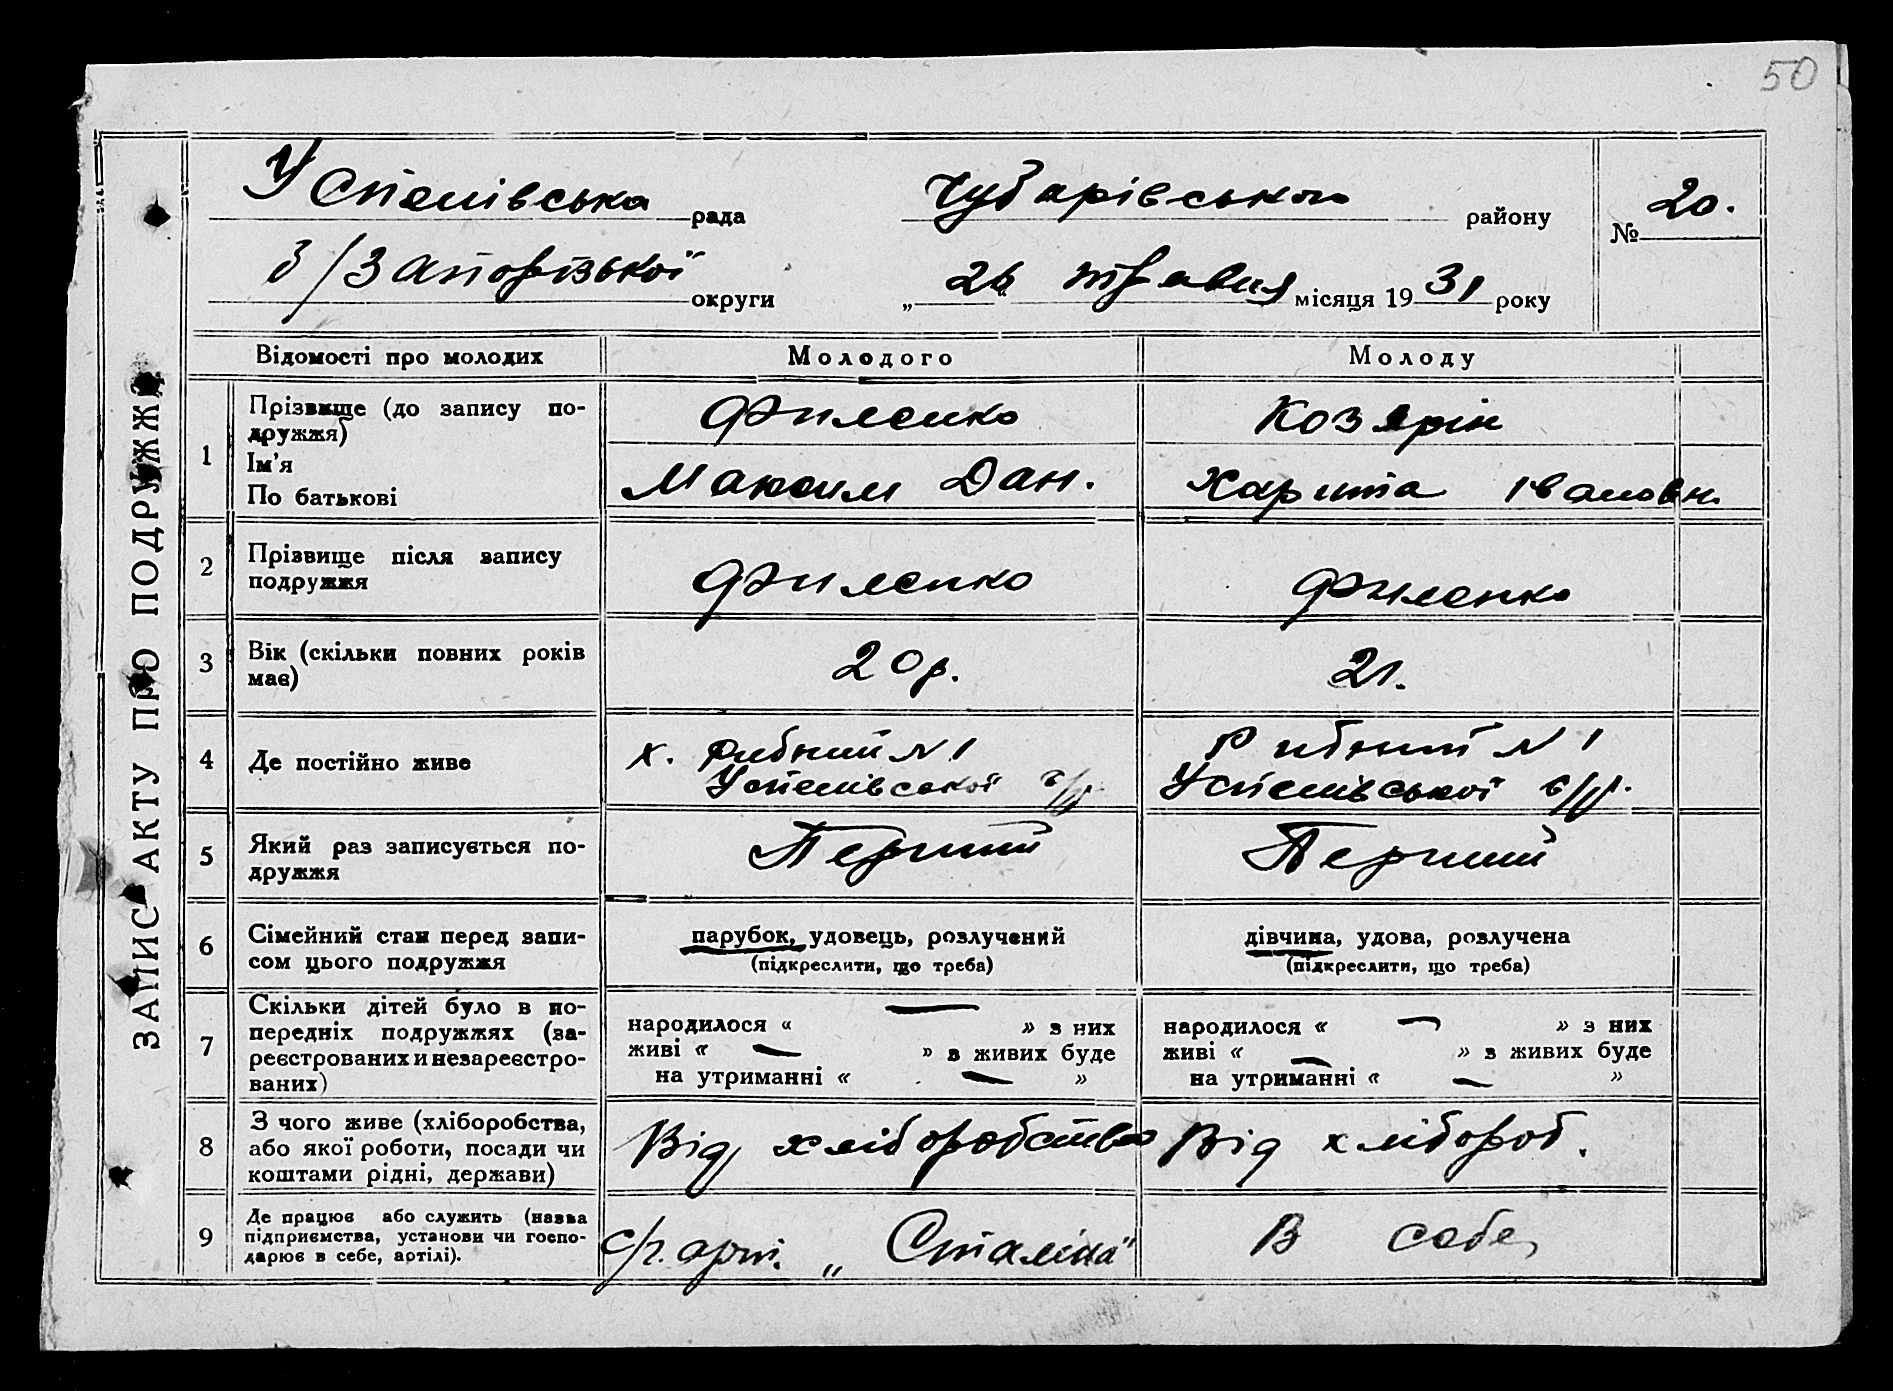 50
Успенівська рада Чубарівського району № 20.
б/Запорізької округи „26" травня місяця 1931 року
ЗАПИС АКТУ ПРО ПОДРУЖЖЯ
Відомості про молодих Молодого Молоду
1 Прізвище (до запису по-
дружжя)
Ім'я
По батькові
Филенко
Максим Дан.
Козярін
Харита Івановн.
2 Прізвище після запису
подружжя
Филенко
Филенко
3 Вік (скільки повних років
має)
20 р.
21.
4 Де постійно живе
х. Рибний №1
Успенівської с/р.
Рибний №1
Успенівської с/р.
5 Який раз записується по-
дружжя
Перший
Перший
6 Сімейний стан перед запи-
сом цього подружжя
парубок, удовець, розлучений
(підкреслити, що треба)
дівчина, удова, розлучена
(підкреслити, що треба)
7 Скільки дітей було в по-
передніх подружжях (за-
реєстрованих и незареєстро-
ваних)
народилося « — » з них
живі « — » з живих буде
на утриманні « — »
народилося « — » з них
живі « — » з живих буде
на утриманні « — »
8 З чого живе (хліборобства,
або якої роботи, посади чи
коштами рідні, держави)
Від хліборобства
Від хлібороб.
9 Де працює або служить (назва
підприємства, установи чи госпо-
дарює в себе, артілі).
с/г. арт. „Сталіна"
В себе